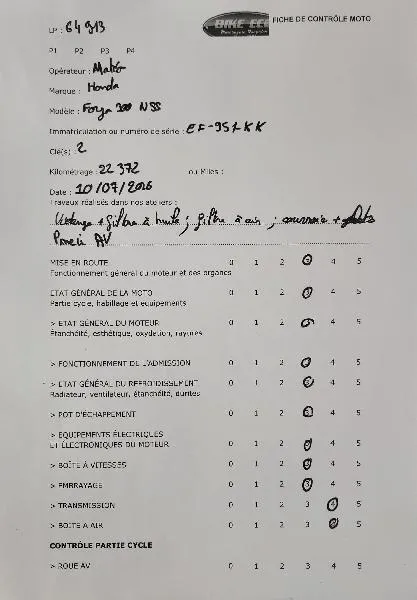 LP : 64 913
BIKE ECO
FICHE DE CONTRÔLE MOTO
P1 P2 P3 P4
Opérateur : Matéo
Marque : Honda
Modèle : Forza 300 NSS
Immatriculation ou numéro de série : EF-951KK
Clé(s) : 2
Kilométrage : 22 372 ou Miles :
Date : 10/07/2026
Travaux réalisés dans nos ateliers :
Vidange + filtre à huile ; filtre à air ; courroie + galets
Pneu AV
MISE EN ROUTE 0 1 2 3 4 5
Fonctionnement général du moteur et des organes
ETAT GÉNÉRAL DE LA MOTO 0 1 2 3 4 5
Partie cycle, habillage et équipements
> ETAT GÉNÉRAL DU MOTEUR 0 1 2 3 4 5
Etanchéité, esthétique, oxydation, rayures
> FONCTIONNEMENT DE L'ADMISSION 0 1 2 3 4 5
> ETAT GÉNÉRAL DU REFROIDISSEMENT 0 1 2 3 4 5
Radiateur, ventilateur, étanchéité, durites
> POT D'ÉCHAPPEMENT 0 1 2 3 4 5
> EQUIPEMENTS ÉLECTRIQUES
ET ÉLECTRONIQUES DU MOTEUR 0 1 2 3 4 5
> BOÎTE À VITESSES 0 1 2 3 4 5
> EMBRAYAGE 0 1 2 3 4 5
> TRANSMISSION 0 1 2 3 4 5
> BOITE A AIR 0 1 2 3 4 5
CONTRÔLE PARTIE CYCLE
> ROUE AV 0 1 2 3 4 5